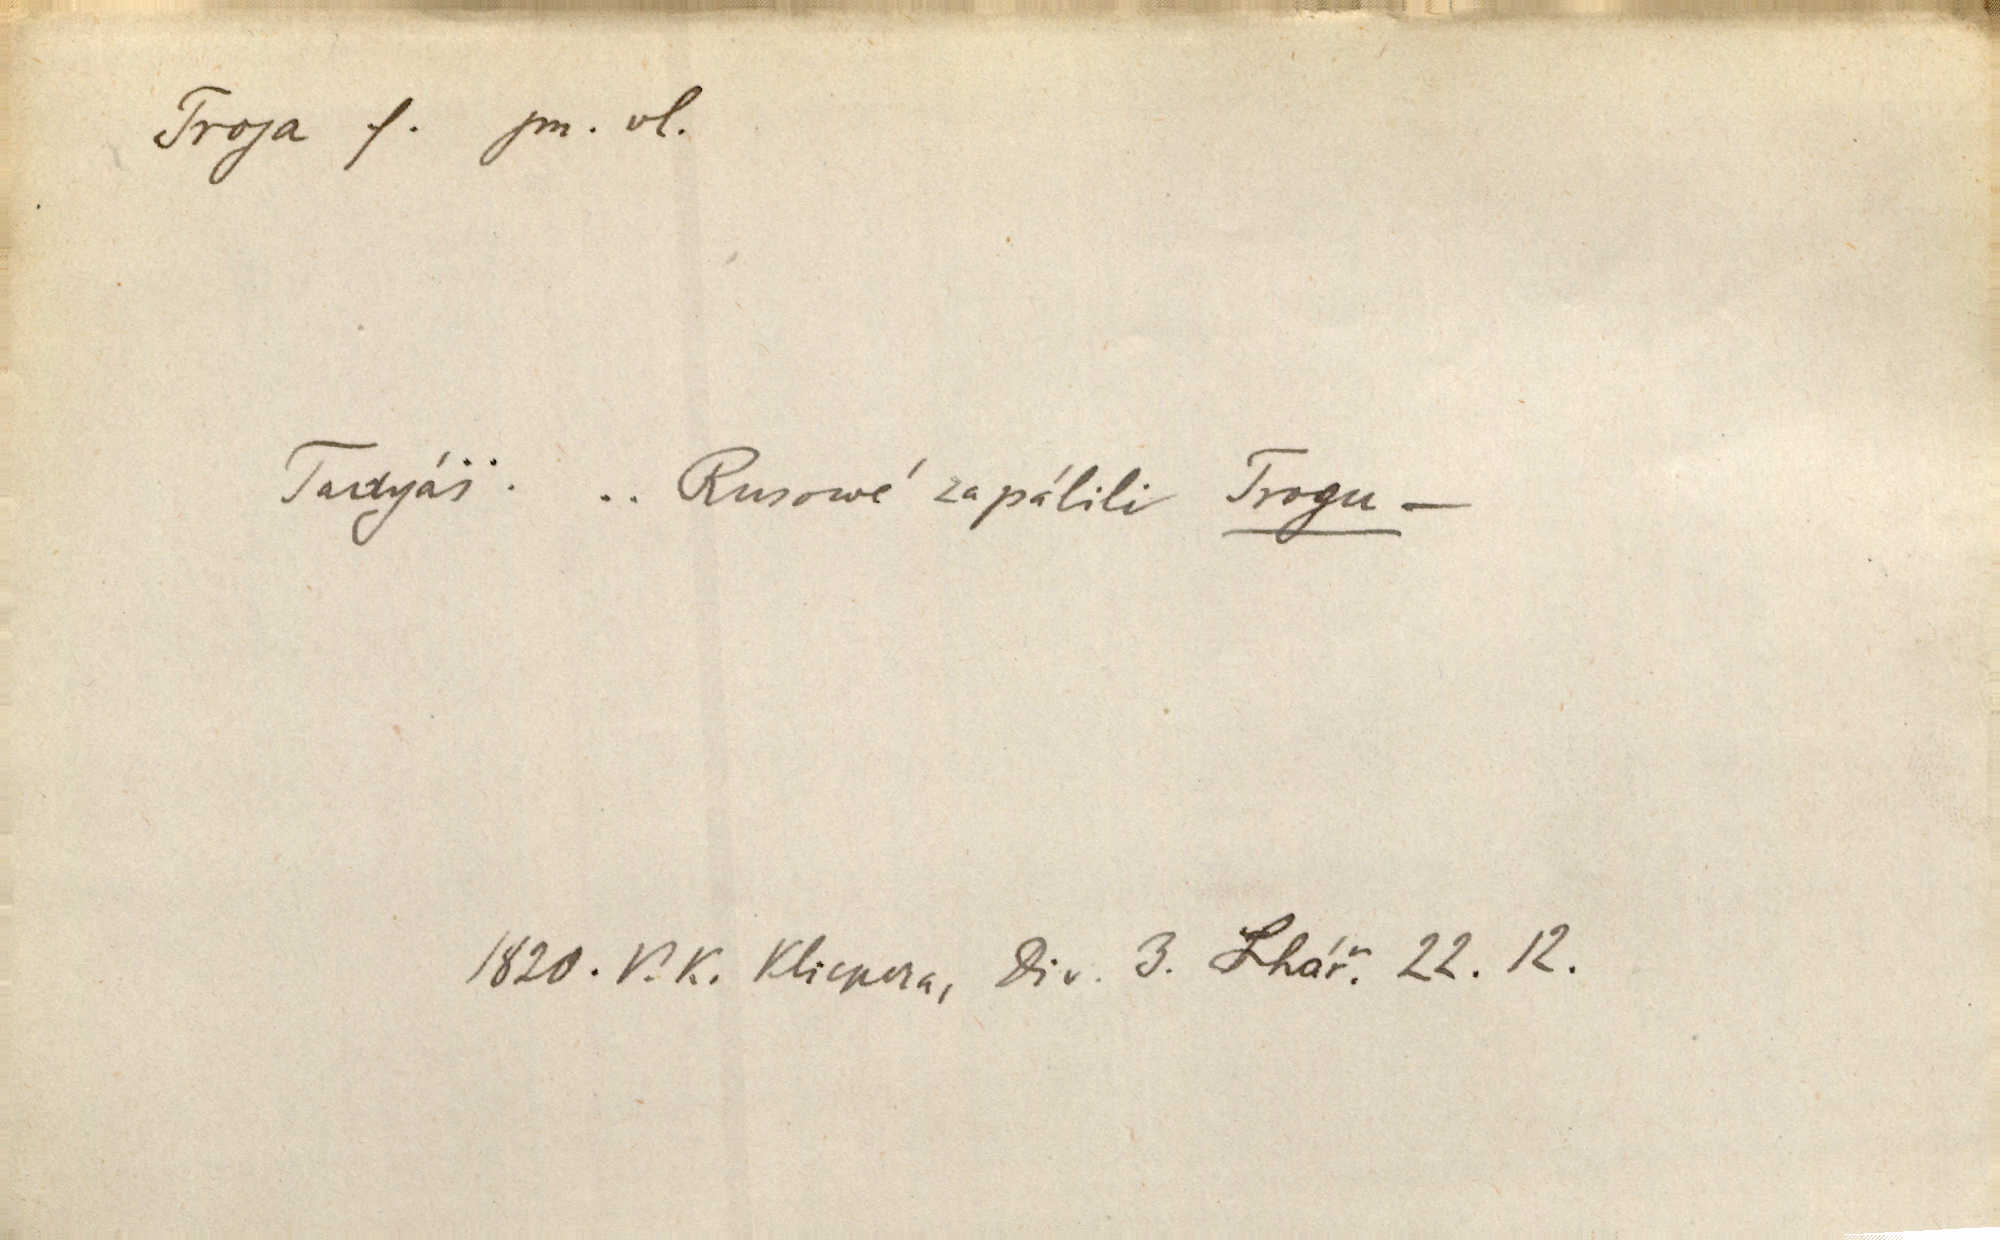 Troja f. jm. vl.
Tadyáš. .. Rusowé zapálili Trogu —
1820. V. K. Klicpera, Div. 3. Lhář. 22. 12.